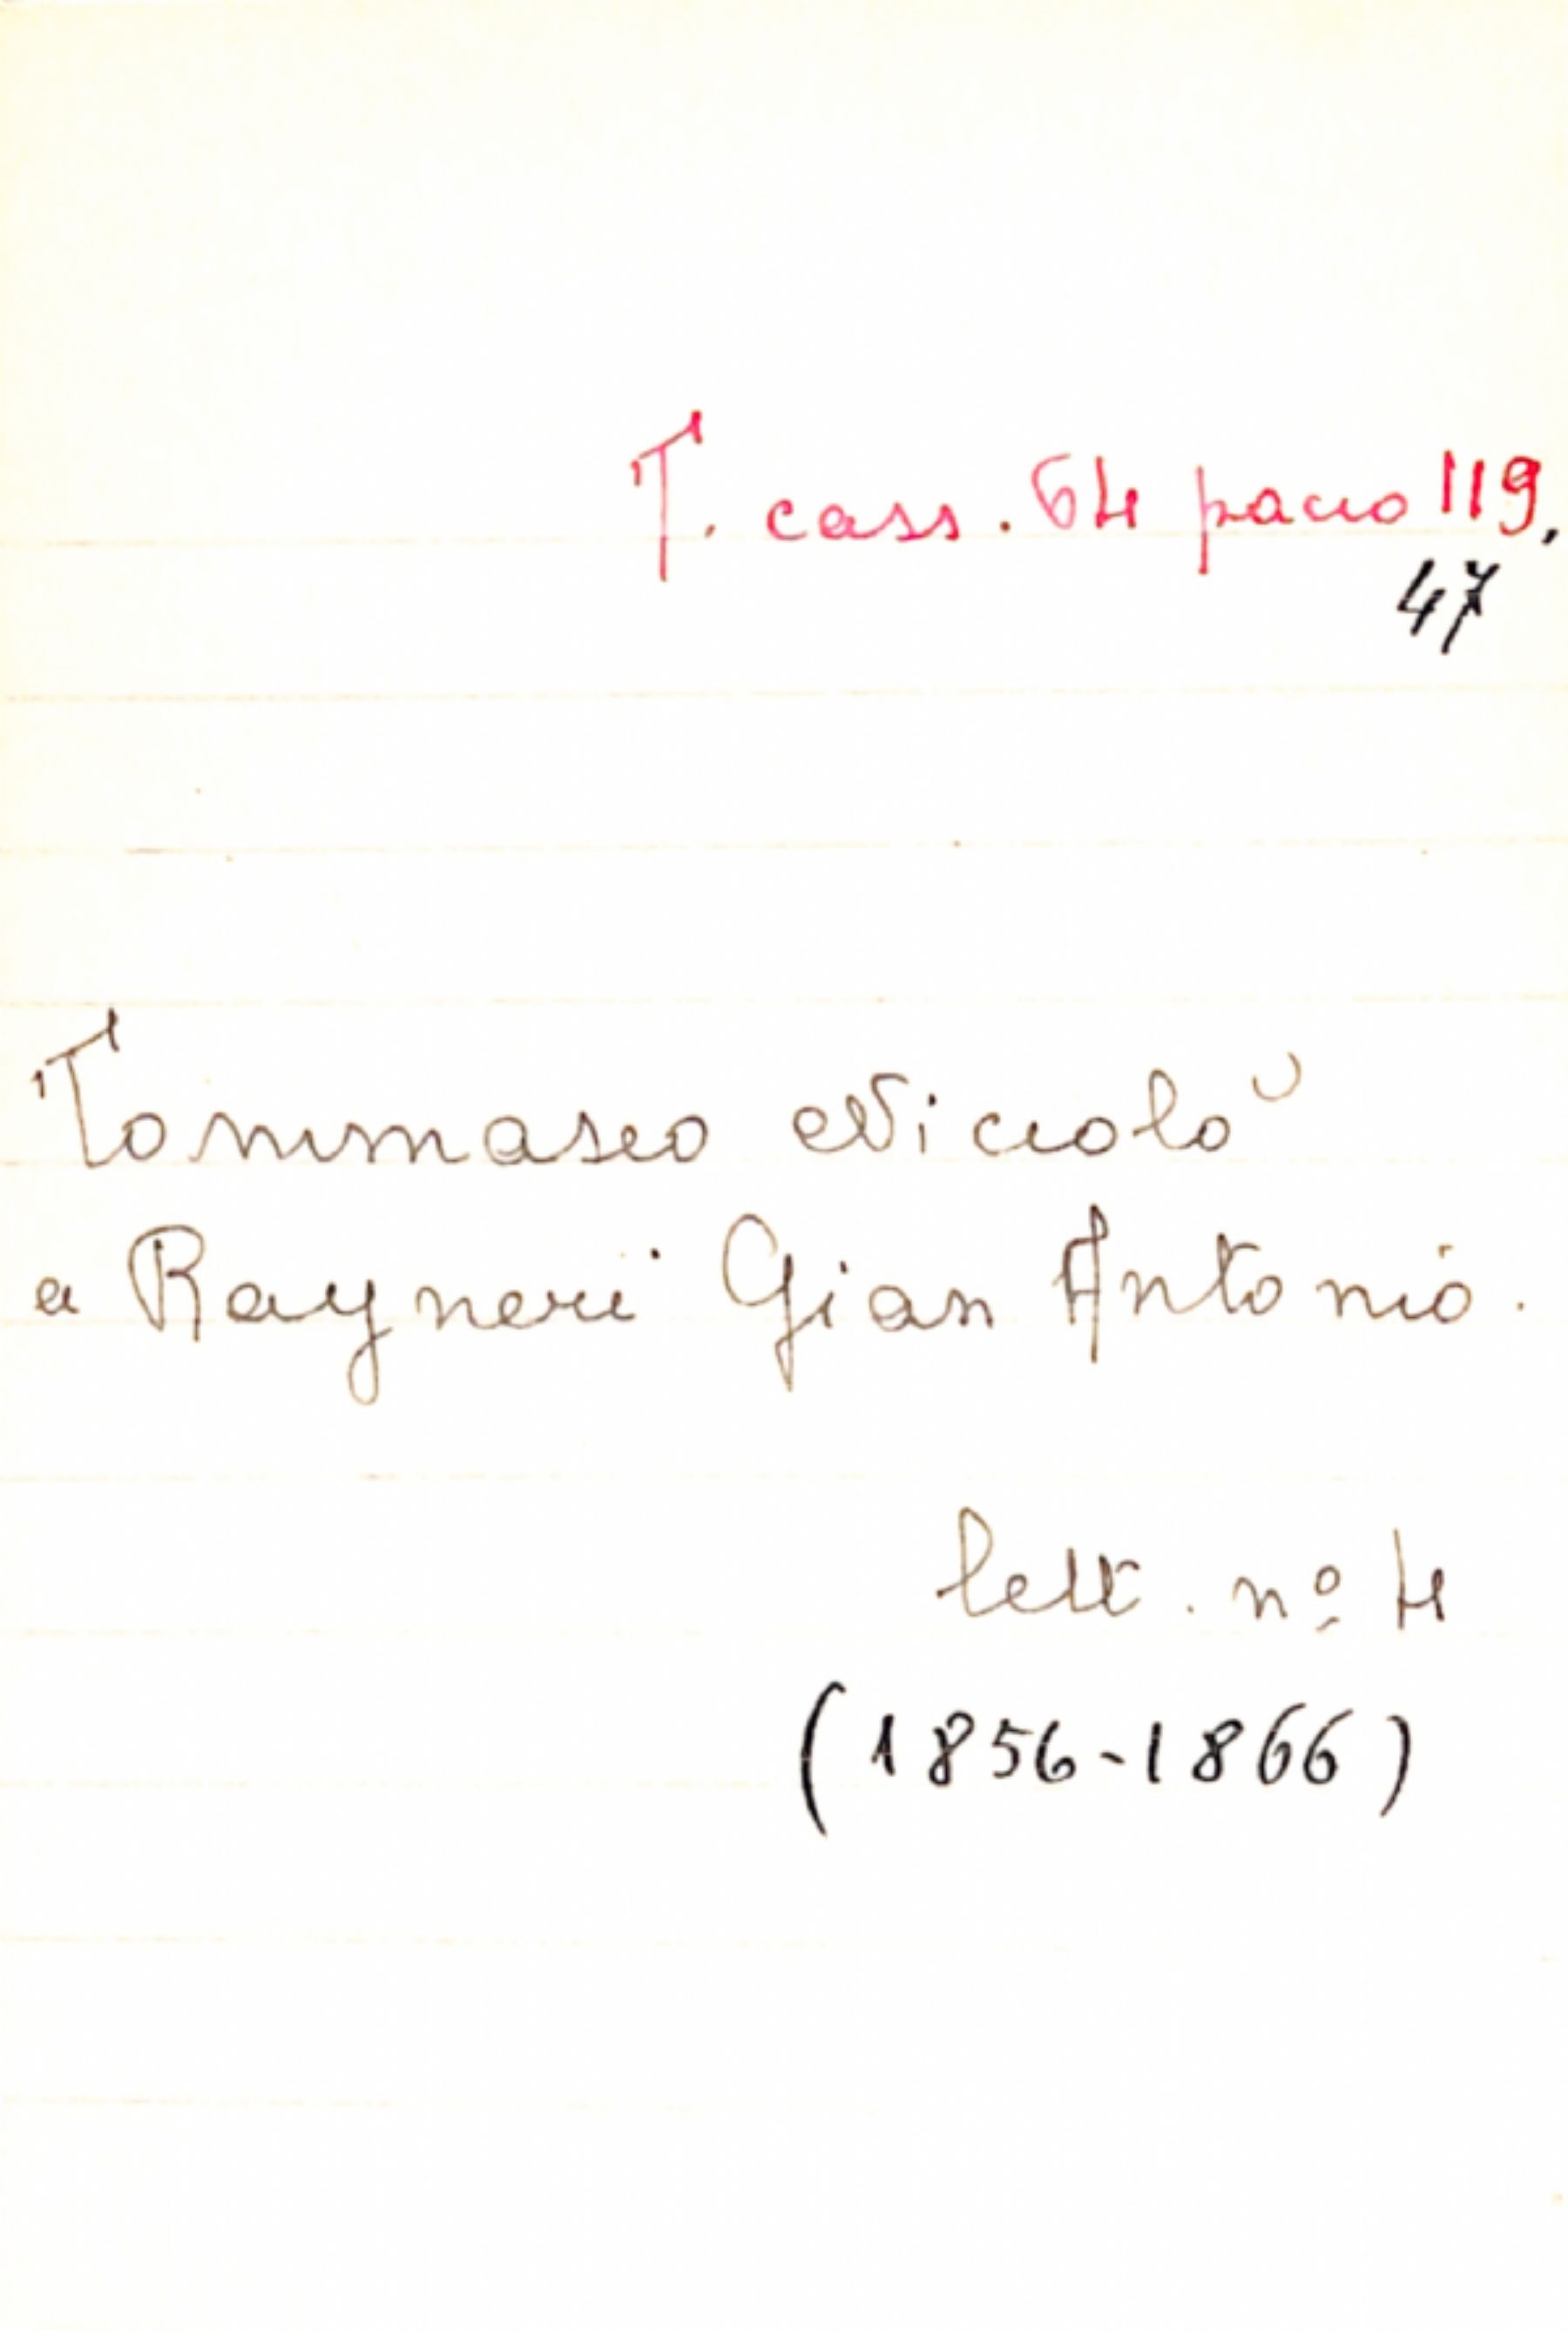 T. cass. 64 pacco 119,
47
Tommaseo Niccolò
a Rayneri Gian Antonio.
lett. nº 4
(1856-1866)